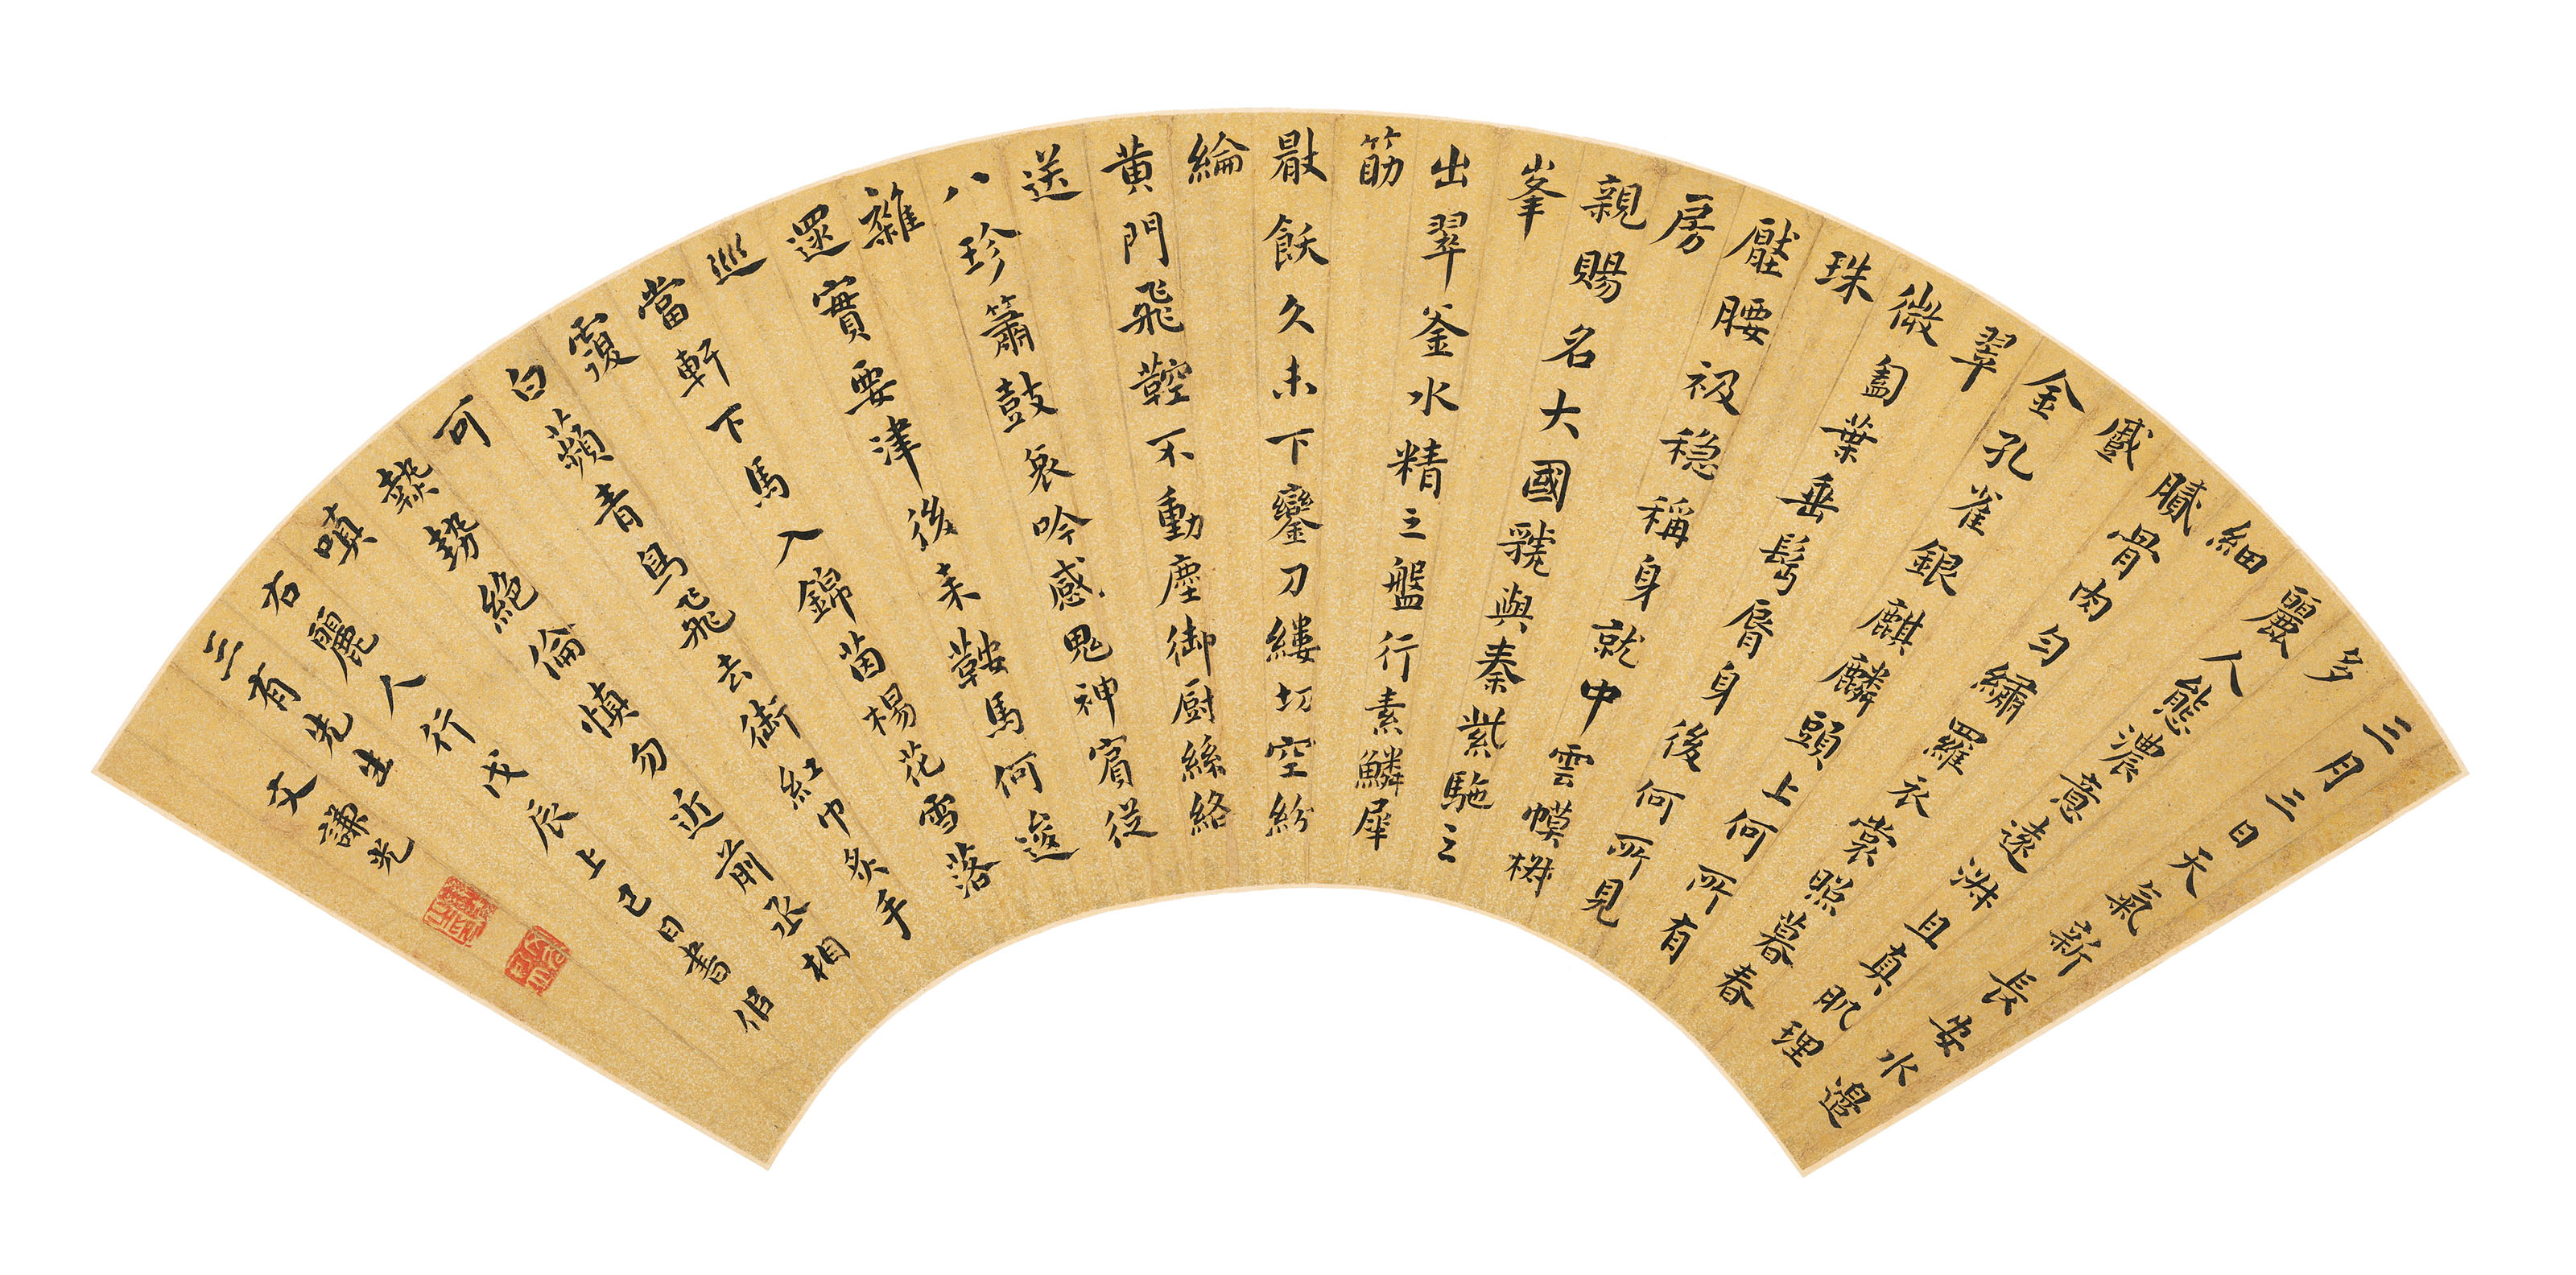 三月三日天氣新長安水邉
多
麗人態濃意遠淋且真肌理
細
膩骨肉匀繡羅衣裳照暮春
蹙
金孔雀銀麒麟頭上何所有
翠
微匎葉垂髩脣身後何所見
珠
壓腰衱穏稱身就中雲幙椒
房
親賜名大國虢與秦紫駞之
峯
出翠釜水精之盤行素鱗犀
筯
厭飫久未下鑾刀縷切空紛
綸
黄門飛鞚不動塵御厨絲絡
送
八珍簫鼓哀吟感鬼神賔從
雜
遝實要津後来鞍馬何逡
巡
當軒下馬入錦茵楊花雪落
覆
白蘋青鳥飛去銜紅巾炙手
可
熱勢絶倫慎勿近前丞相
嗔
右麗人行戊辰上巳日書似
三有先生 文謙光